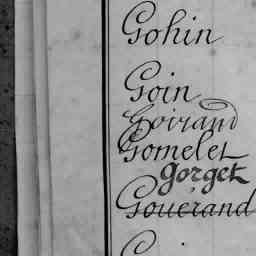 Gohin
Goin
Goirand
Gomelet
gorget
Gouerand